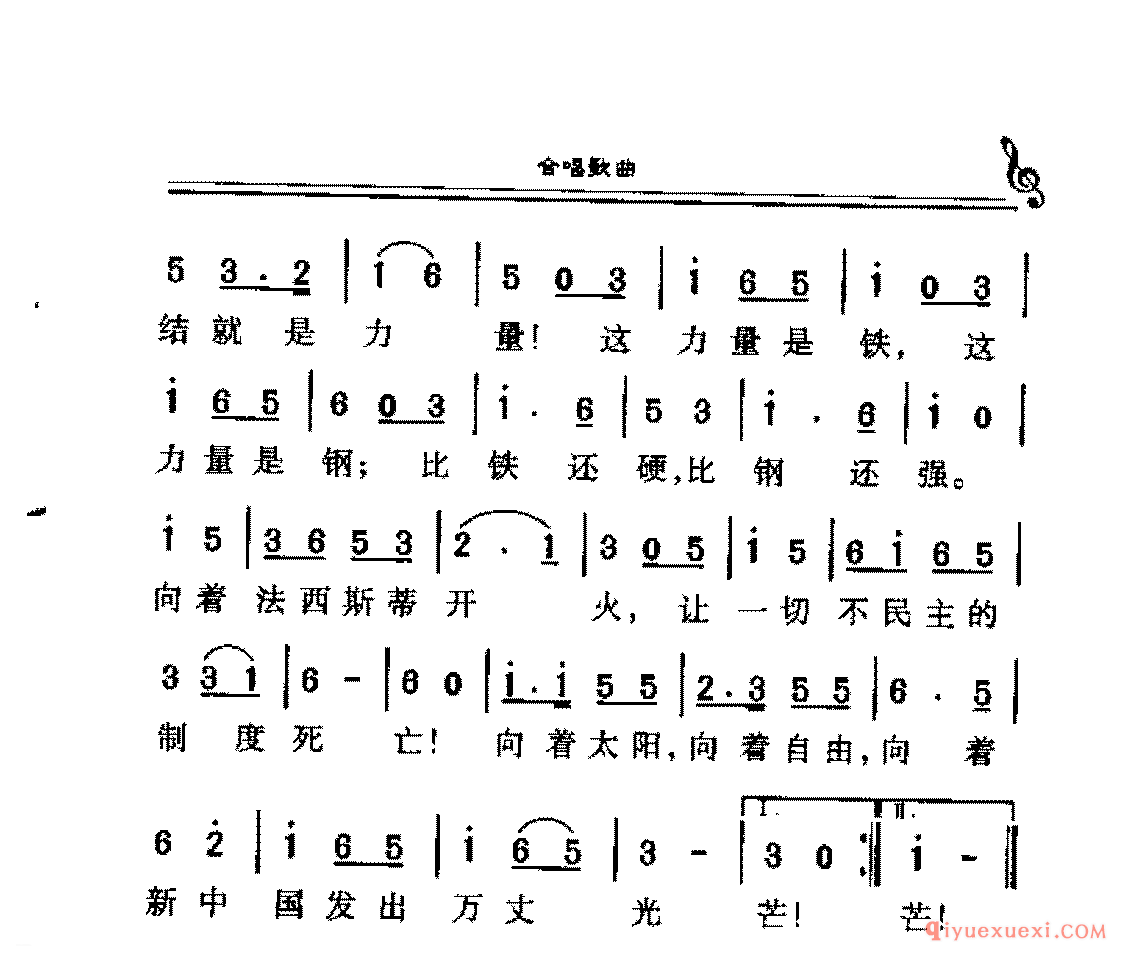 合唱歌曲
5 3.2 | 1 6 | 5 0 3 | i 6 5 | i 0 3 |
结就是力量！这力量是铁，这
i 6 5 | 6 0 3 | i . 6 | 5 3 | i . 6 | i 0 |
力量是钢；比铁还硬，比钢还强。
i 5 | 3 6 5 3 | 2 . 1 | 3 0 5 | i 5 | 6 i 6 5 |
向着法西斯蒂开火，让一切不民主的
3 3 1 | 6 - | 6 0 | i . i 5 5 | 2 . 3 5 5 | 6 . 5 |
制度死亡！向着太阳，向着自由，向着
I. II.
6 2̇ | i 6 5 | i 6 5 | 3 - | 3 0 :‖ i - ‖
新中国发出万丈光芒！芒！
qiyuexuexi.COM